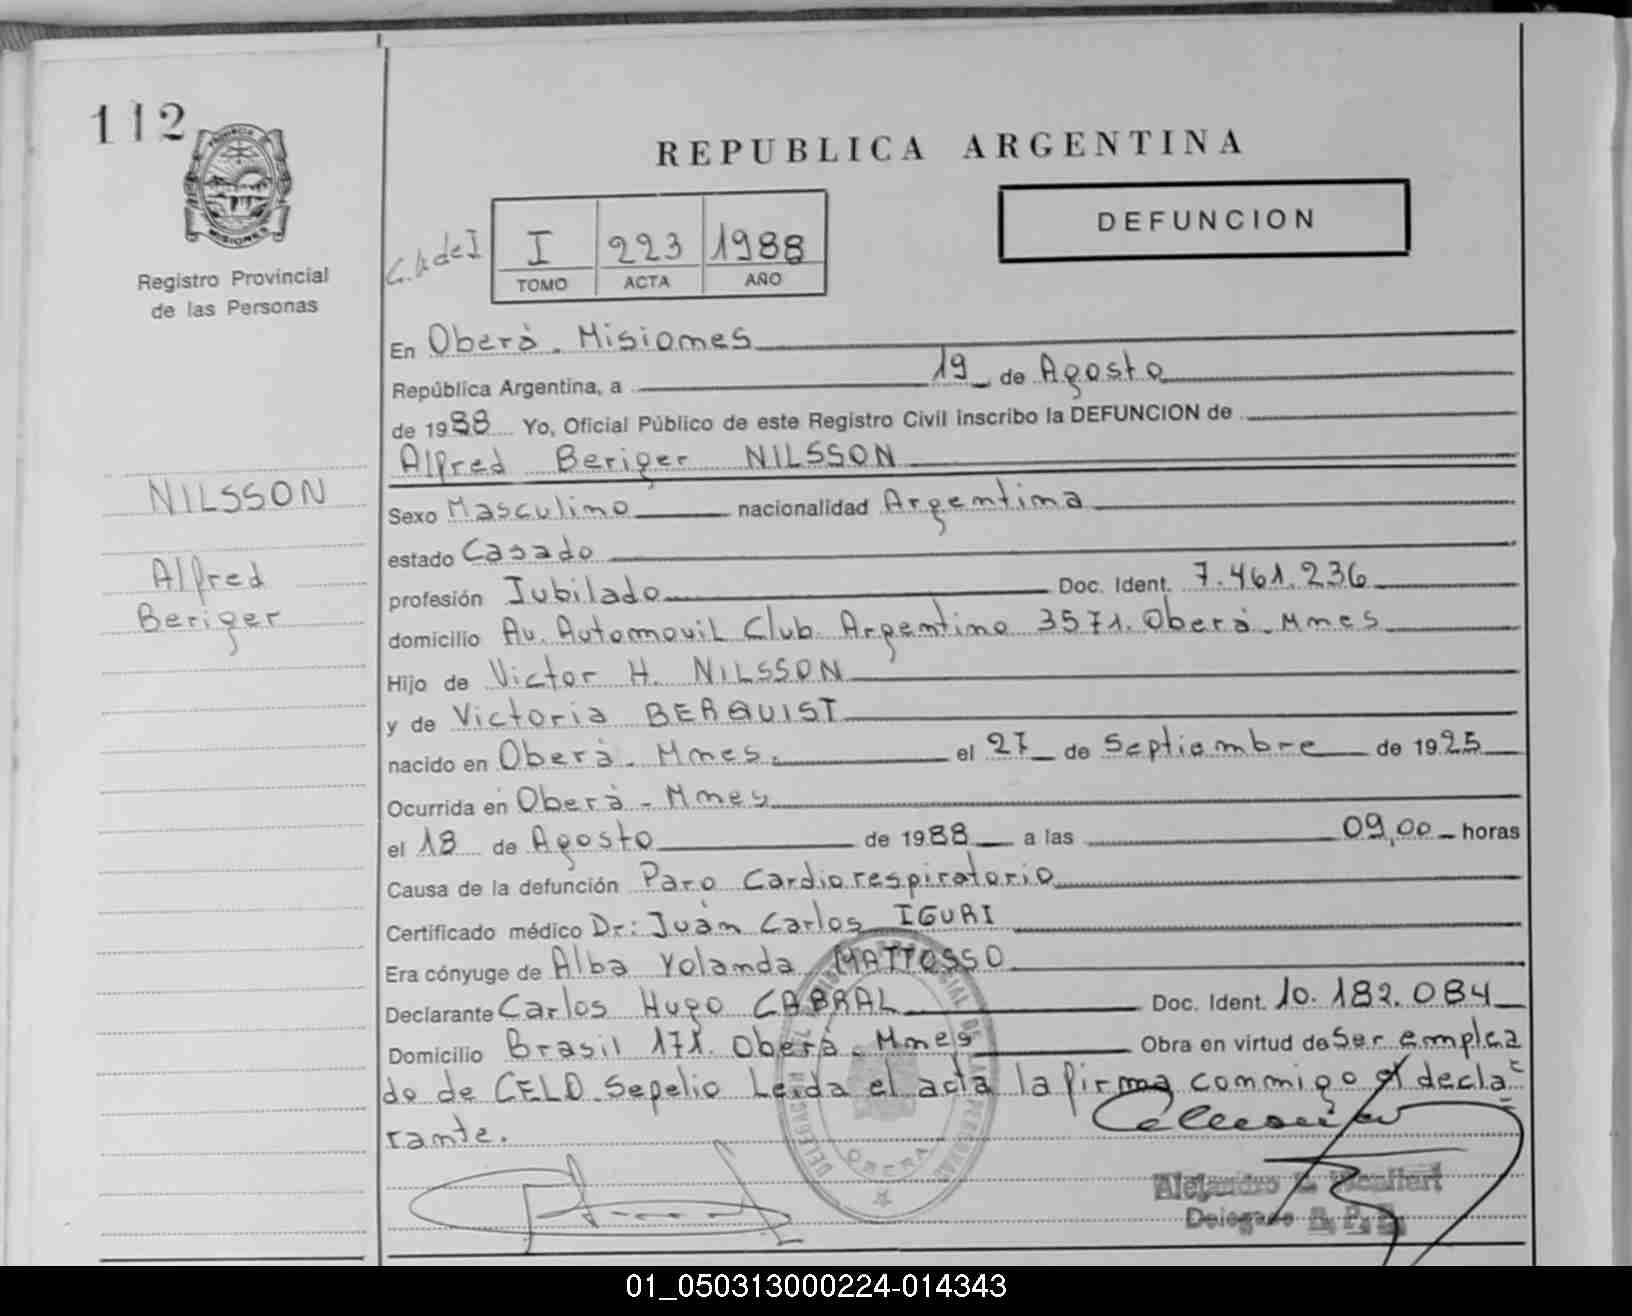 112
PROVINCIA
MISIONES
Registro Provincial
de las Personas
REPUBLICA ARGENTINA
DEFUNCION
I 223 1988
TOMO ACTA AÑO
En Oberá - Misiones
República Argentina, a 19 de Agosto
de 1988 Yo, Oficial Público de este Registro Civil inscribo la DEFUNCION de
Alfred Beriger NILSSON
NILSSON
Alfred
Beriger
Sexo Masculino nacionalidad Argentina
estado Casado
profesión Jubilado Doc. Ident. 7.461.236
domicilio Av. Automovil Club Argentino 3571. Oberá - Mnes
Hijo de Victor H. NILSSON
y de Victoria BERQUIST
nacido en Oberá - Mnes. el 27 de Septiembre de 1925
Ocurrida en Oberá - Mnes
el 18 de Agosto de 1988 a las 09,00 horas
Causa de la defunción Paro Cardiorespiratorio
Certificado médico Dr: Juan Carlos IGURI
Era cónyuge de Alba Yolanda MATTOSSO
Declarante Carlos Hugo CABRAL Doc. Ident. 10.182.084
Domicilio Brasil 171. Oberá - Mnes Obra en virtud de Ser emplea
do de CELO Sepelio Leída el acta la firma conmigo el decla
rante.
OBERA
Alejandro
Delegado R. P. P.
01_050313000224-014343